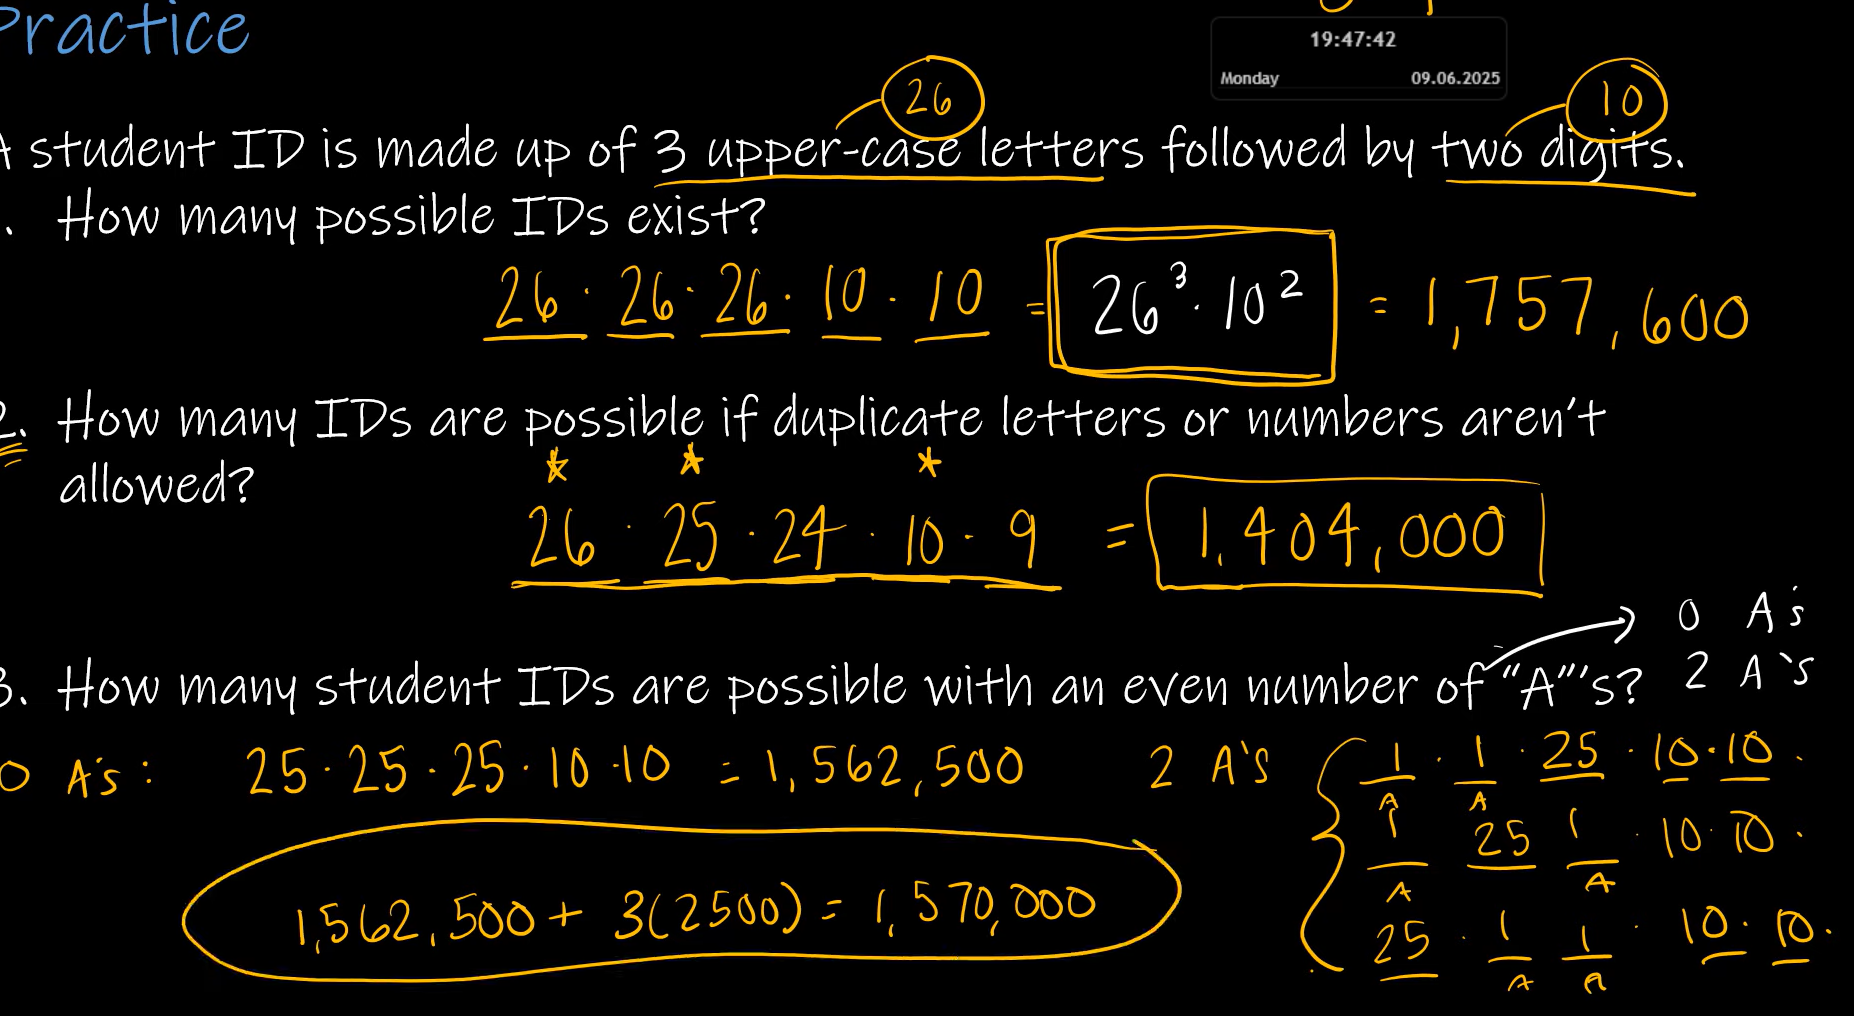 Practice
19:47:42
Monday 09.06.2025
26
10
A student ID is made up of 3 upper-case letters followed by two digits.
. How many possible IDs exist?
26 · 26 · 26 · 10 · 10 = 26³ · 10² = 1,757,600
2. How many IDs are possible if duplicate letters or numbers aren't
allowed?
26 · 25 · 24 · 10 · 9 = 1,404,000
0 A's
3. How many student IDs are possible with an even number of "A"'s? 2 A's
0 A's: 25 · 25 · 25 · 10 · 10 = 1,562,500
2 A's
1 · 1 · 25 · 10 · 10 .
A A
1 25 1 · 10 · 10 .
A A
25 · 1 1 · 10 · 10 .
A A
1,562,500 + 3(2500) = 1,570,000